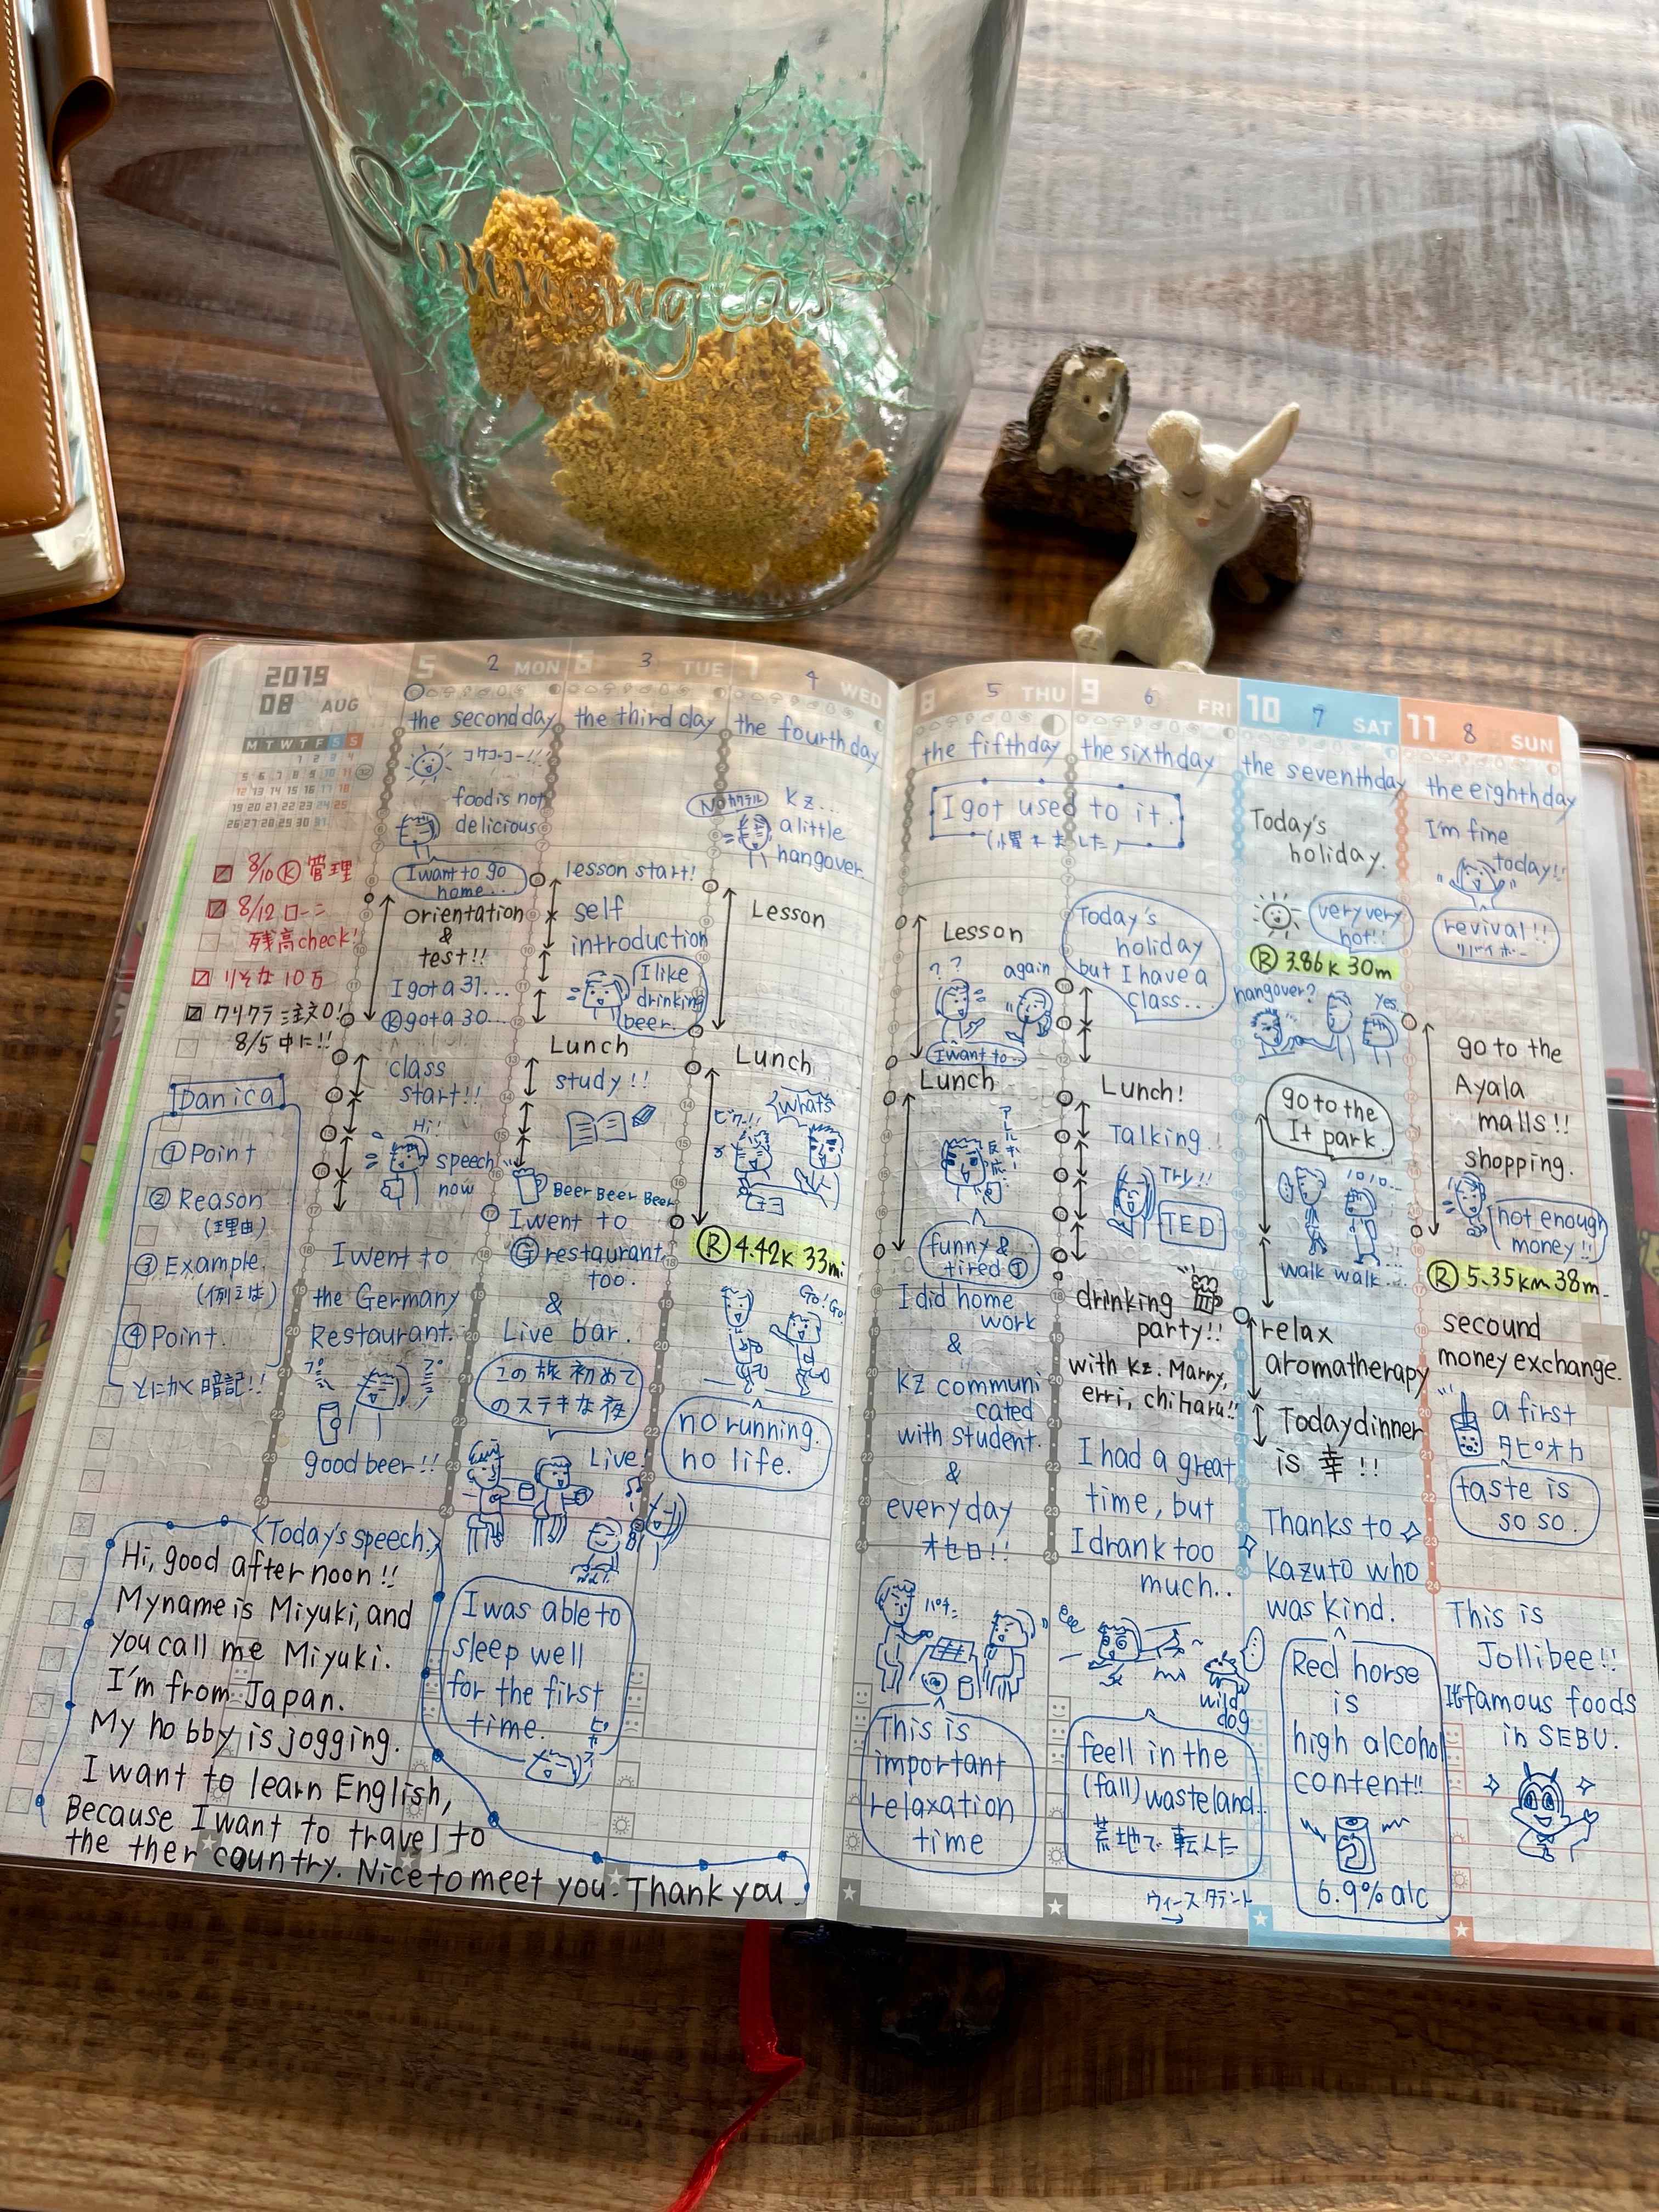 Sunnenglas
2019
08 AUG
M T W T F S S
1 2 3 4
5 6 7 8 9 10 11
12 13 14 15 16 17 18
19 20 21 22 23 24 25
26 27 28 29 30 31
8/10 Ⓚ 管理
8/12 ローン
残高check!
りそな 10万
8/5中に!!
Danica
① Point
② Reason
(理由)
③ Example.
(例えば)
④ Point.
とにかく暗記!!
5 2 MON
the second day
コケコーコー!!
food is not
delicious
I want to go
home...
orientation
&
test!!
I got a 31...
Ⓚ got a 30...
class
start!!
Hi!
speech
now
I went to
the Germany
Restaurant.
good beer!!
<Today's speech>
Hi, good afternoon!!
My name is Miyuki, and
you call me Miyuki.
I'm from Japan.
My hobby is jogging.
I want to learn English,
Because I want to travel to
the ther country. Nice to meet you. Thank you.
6 3 TUE
the third day
lesson start!
self
introduction
I like
drinking
beer.
Lunch
study!!
Beer Beer Beer
I went to
Ⓖ restaurant
too.
&
Live bar.
この旅初めて
のステキな夜
Live!
I was able to
sleep well
for the first
time.
7 4 WED
the fourth day
No
Kz...
a little
hangover
Lesson
Lunch
what's
ビク!!
Ⓡ 4.42k 33mi
Go! Go!
no running.
no life.
8 5 THU
the fifth day
I got used to it.
(慣れました)
Lesson
? ?
again
I want to..
Lunch
funny &
tired
I did home
work
&
Kz communi
cated
with student.
&
everyday
オセロ!!
パチ
This is
important
relaxation
time
9 6 FRI
the sixth day
Today's
holiday
but I have a
class...
Lunch!
Talking!
Try!!
TED
drinking
party!!
with Kz. Marry,
erri, chiharu!!
I had a great
time, but
I drank too
much..
wild
dog
feell in the
(fall) wasteland.
荒地で転んだ
10 7 SAT
the seventh day
Today's
holiday.
very very
hot!!
Ⓡ 3.86k 30m
hangover?
Yes.
go to the
It park.
walk walk...
relax
aromatherapy
Today dinner
is 幸!!
Thanks to
Kazuto who
was kind.
Red horse
is
high alcohol
content!!
6.9% alc
11 8 SUN
the eighth day
I'm fine
today!!
revival!!
go to the
Ayala
malls!!
shopping.
not enough
money!!
Ⓡ 5.35km 38m.
secound
money exchange.
a first
タピオカ
taste is
so so.
This is
Jollibee!!
famous foods
in SEBU.